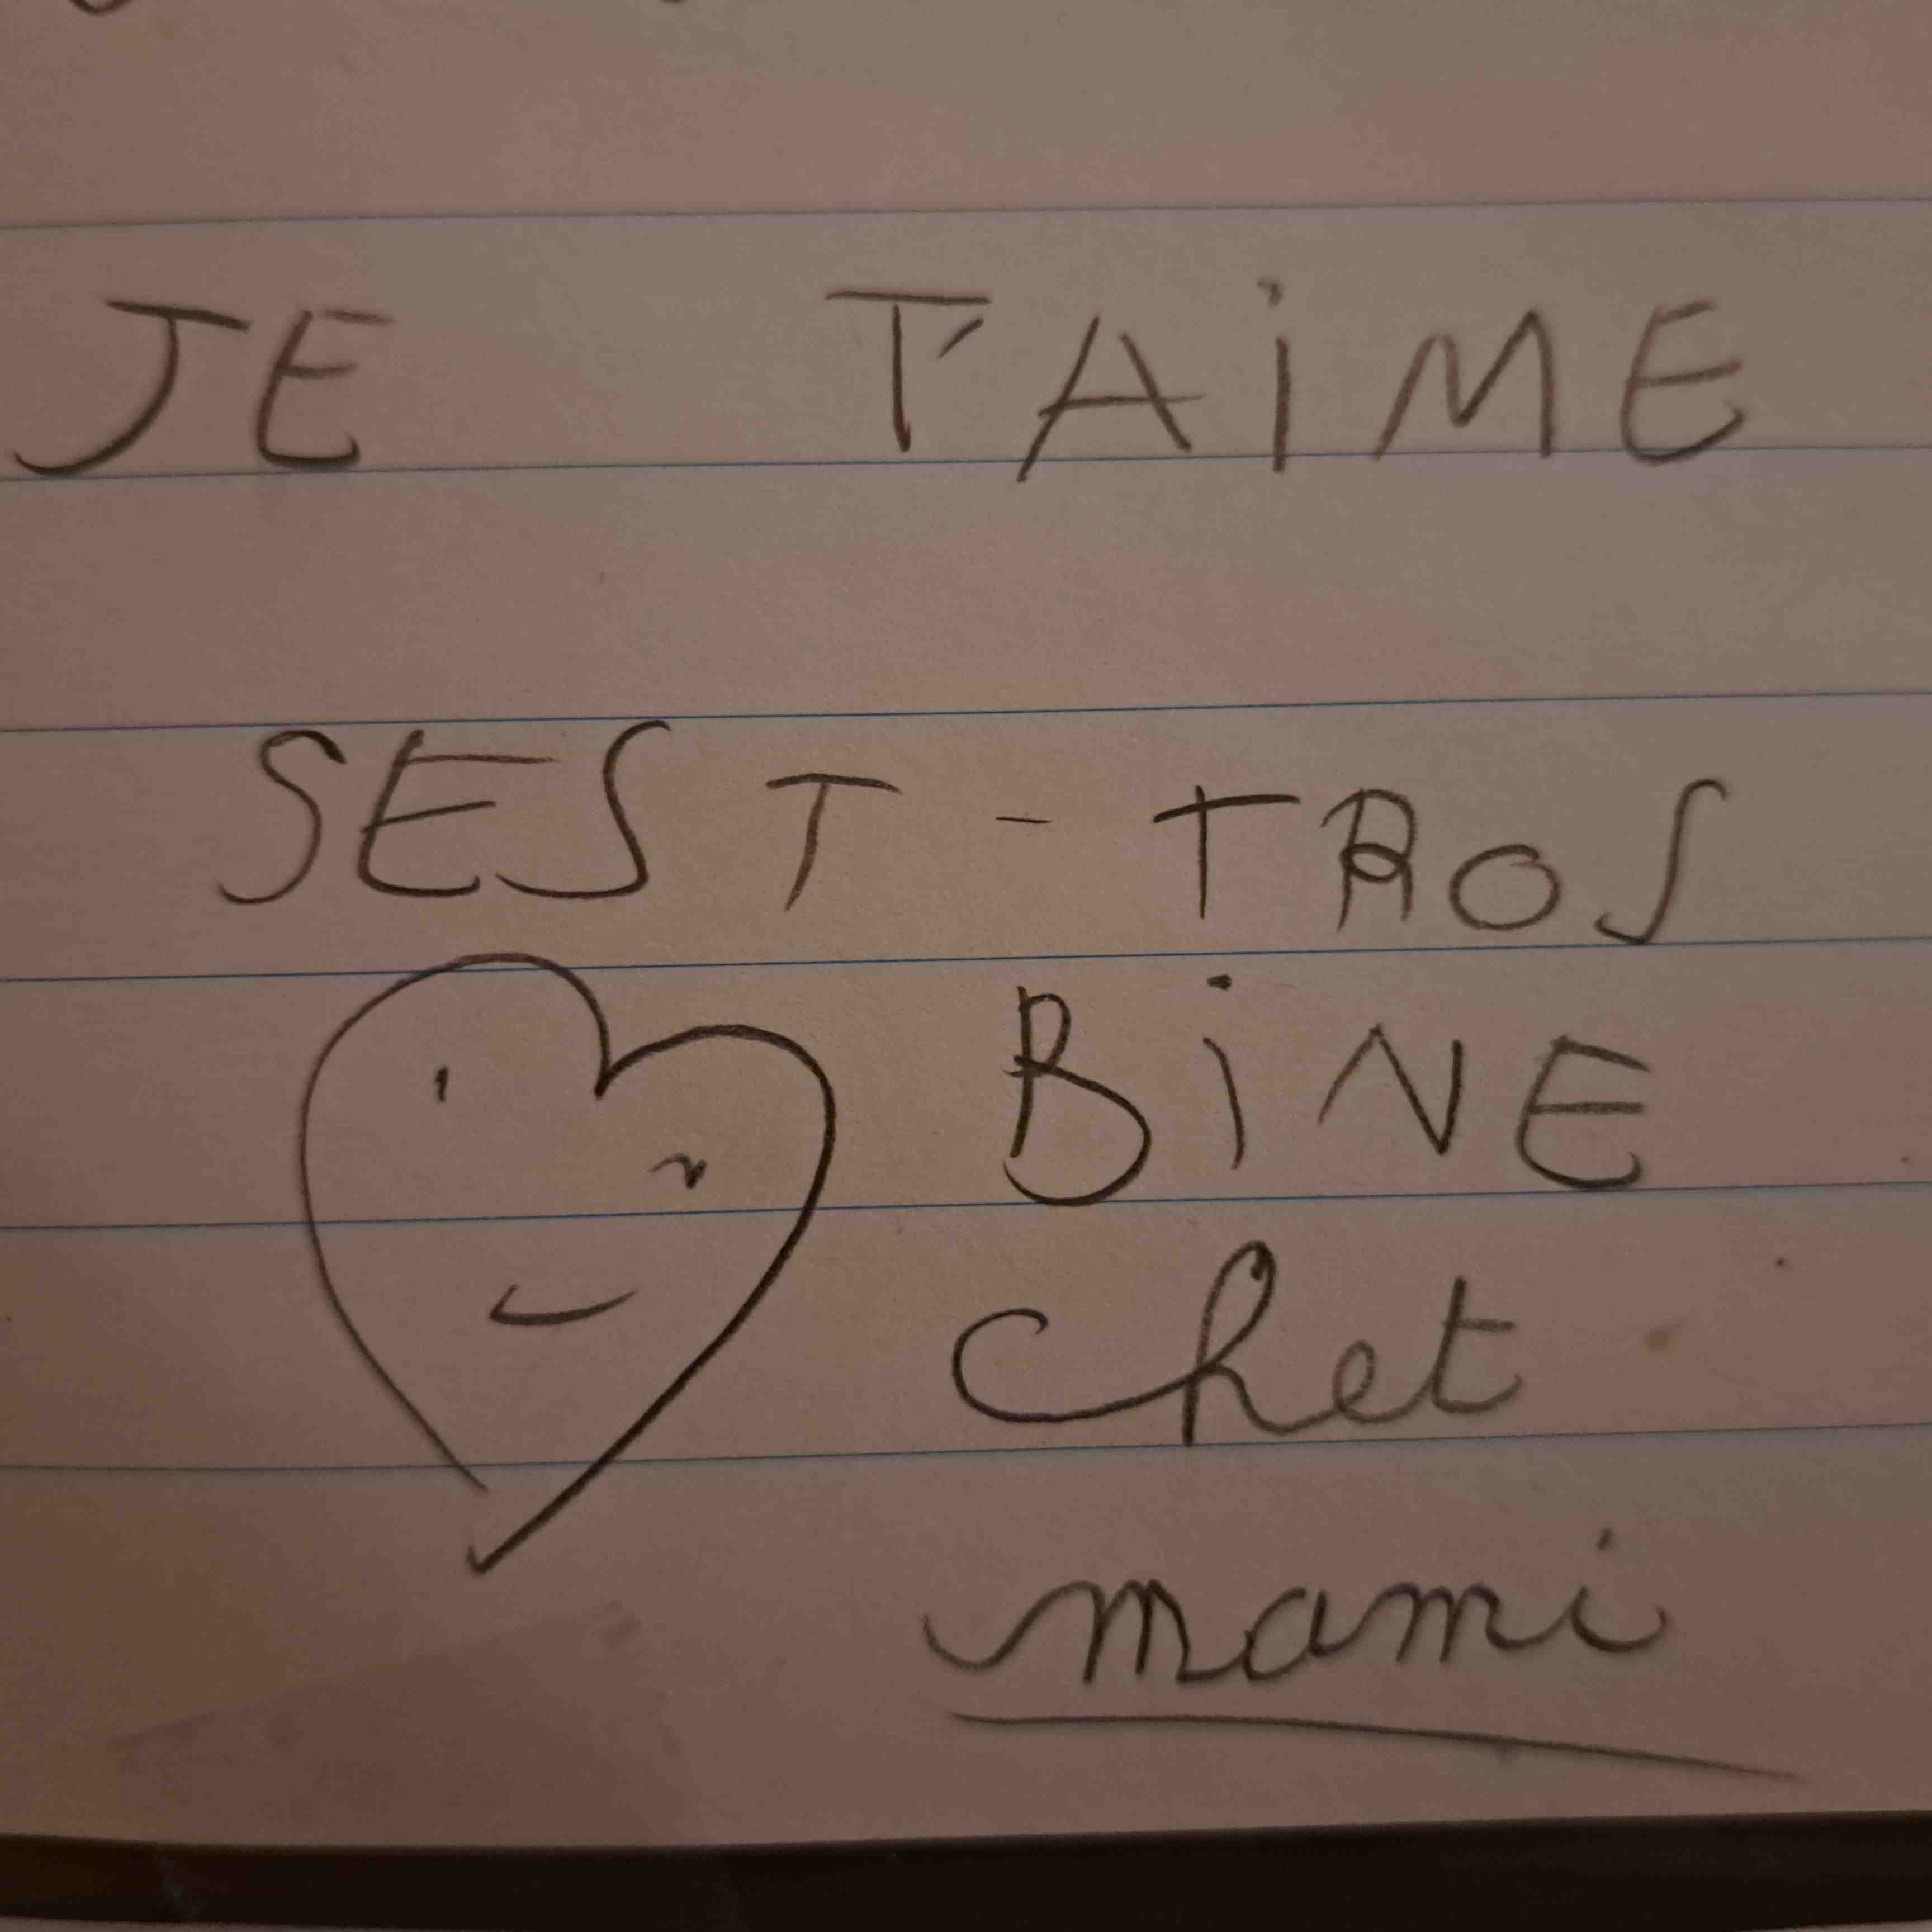 JE T'AiME
SEST - TROS
BiNE
chet
mami